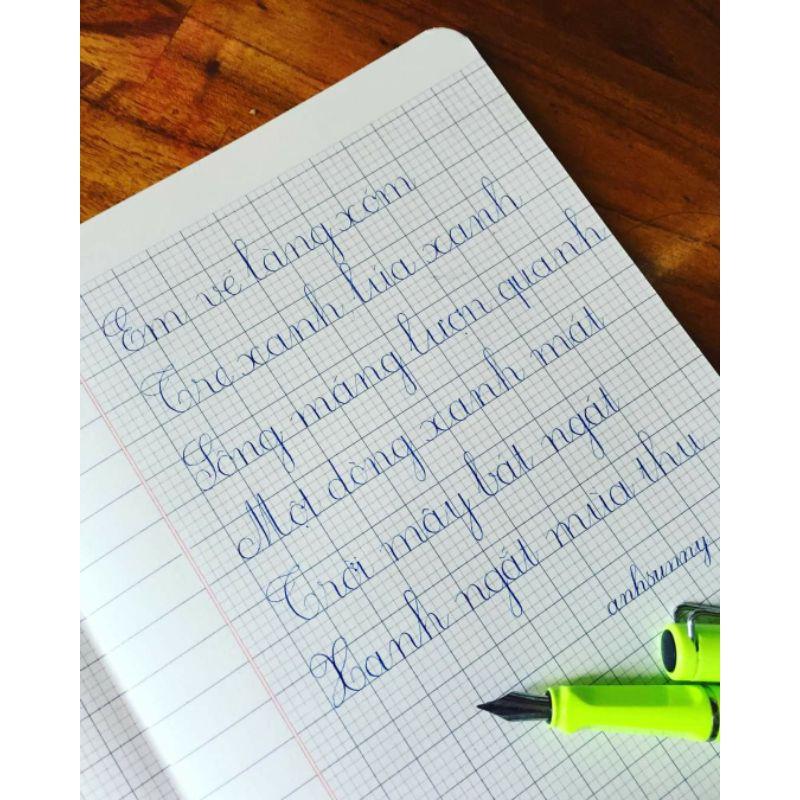 Em vẽ làng xóm
Tre xanh lúa xanh
Sông máng lượn quanh
Một dòng xanh mát
Trời mây bát ngát
Xanh ngắt mùa thu
anhsunny